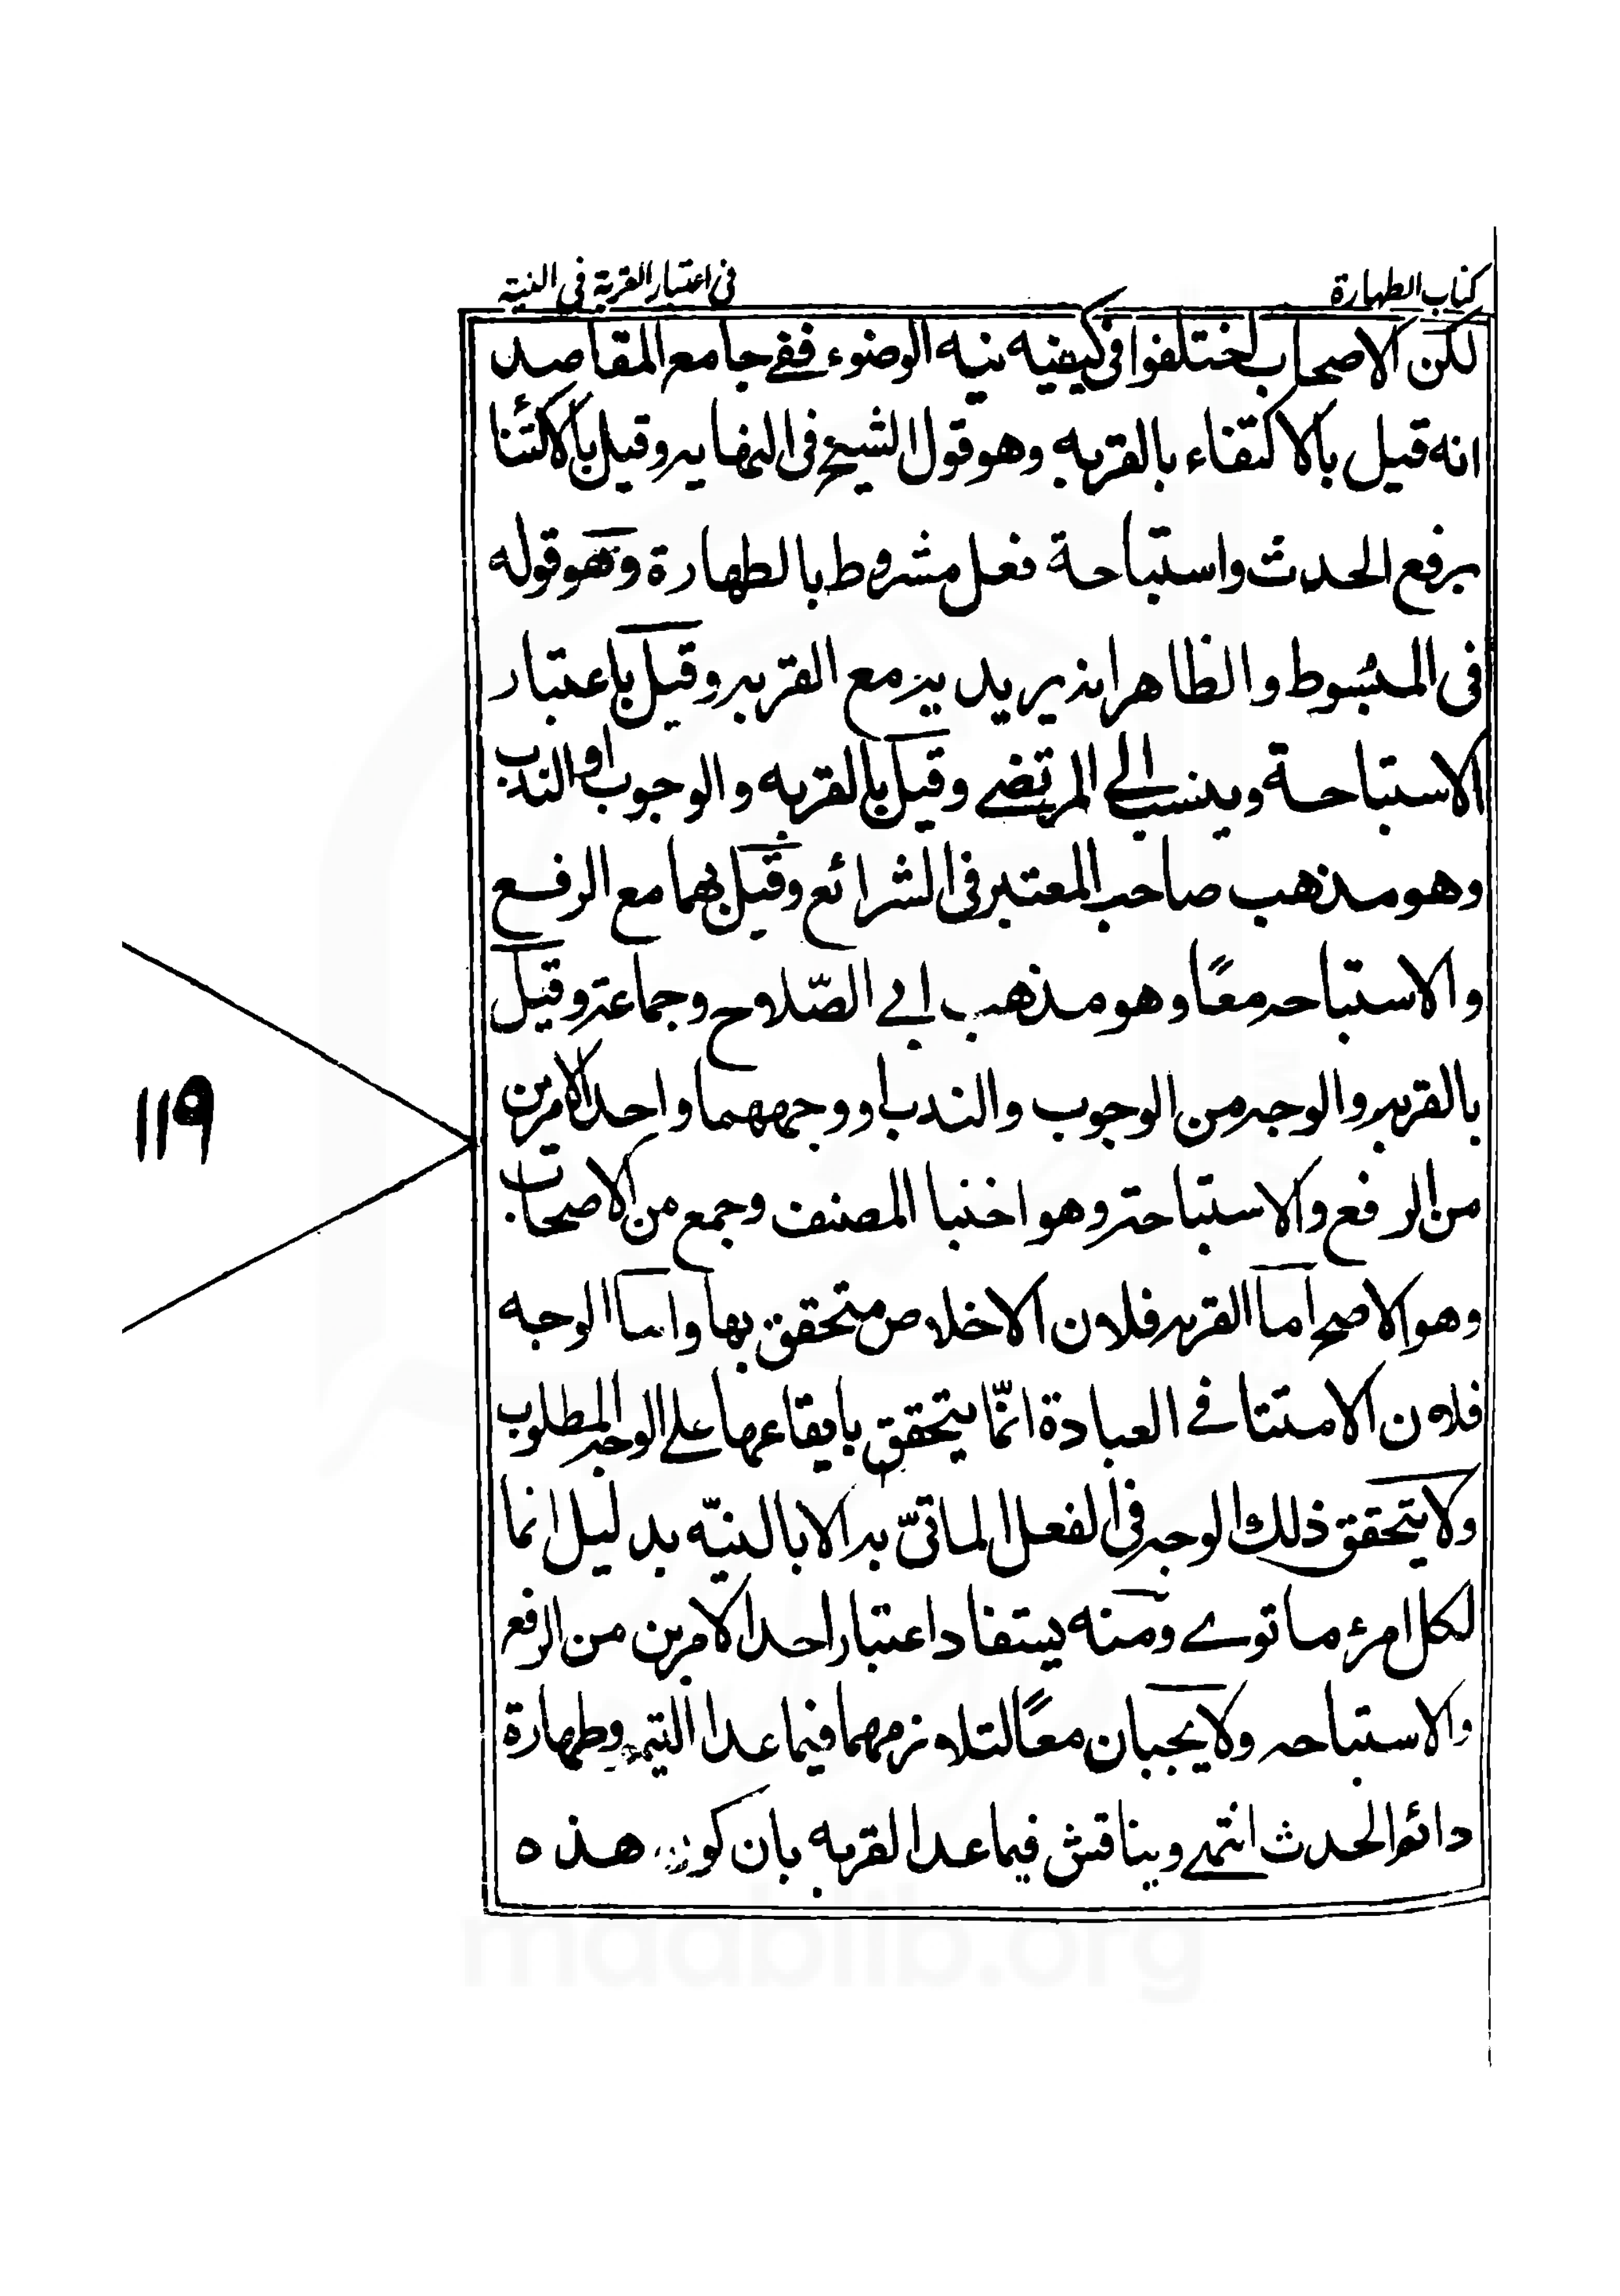 كتاب الطهارة
في اعتبار القربة في النية
لكن الاصحاب اختلفوا في كيفيه نيه الوضوء ففي جامع المقاصد
انه قيل بالاكتفاء بالقربه وهو قول الشيخ في النهايه وقيل بالاكتفا
برفع الحدث واستباحة فعل مشروط بالطهارة وهو قوله
في المبسوط والظاهر انه يريد به مع القربه وقيل باعتبار
الاستباحة وينسب الى المرتضى وقيل بالقربه والوجوب او الندب
وهو مذهب صاحب المعتبر في الشرائع وقيل بهما مع الرفع
والاستباحه معًا وهو مذهب ابي الصّلاح وجماعة وقيل
بالقربه والوجه من الوجوب والندب او وجههما واحد الامرين
من الرفع والاستباحة وهو اختيا المصنف وجمع من الاصحاب
وهو الاصح اما القربه فلان الاخلاص متحقق بها واما الوجه
فلان الامتثا في العبادة انّما يتحقق بايقاعها على الوجه المطلوب
ولا يتحقق ذلك الوجه في الفعل الماتىّ به الا بالنيّه بدليل انما
لكل امرئ ما نوى ومنه يستفاد اعتبار احد الامرين من الرفع
والاستباحه ولا يجبان معًا لتلازمهما فيما عدا التيمم وطهارة
دائم الحدث انتهى ويناقش فيما عدا القربه بان كون هذه
119
maablib.org